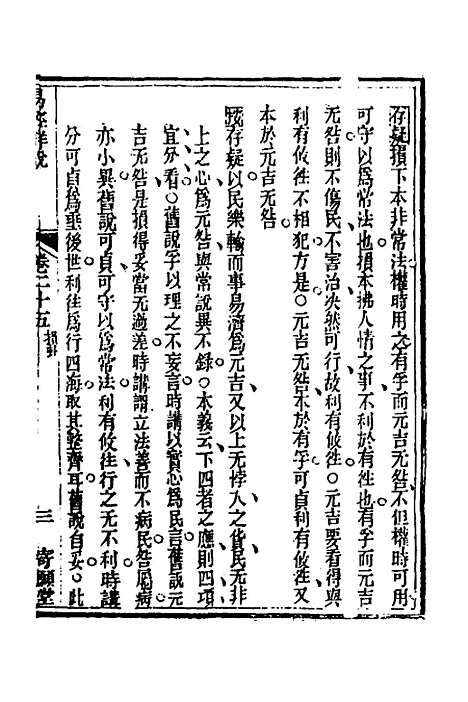 存疑損下本非常法權時用之有孚而元吉无咎不但權時可用
可守以為常法也損本拂人情之事不利於有徃也有孚元吉
无咎則不傷民不害治决然可行故利有攸徃○元吉要看得與
利有攸徃不相犯方是○元吉无咎本於有孚可貞利有攸徃又
本於元吉无咎
存疑以民樂輸而事易濟為元吉又以上无悖入之貨民无非
上之心為元咎與常說異不錄○本義云下四者之應則四項
宜分看○舊說孚以理之不妄言時講以實心為民言舊說元
吉无咎是損得妥當无過差時講謂立法善而不病民咎即病
亦小異舊說可貞可守以為常法利有攸徃行之无不利時講
分可貞為垂後世利徃為行四海取其整齊耳舊說自妥○此
易經詳說 卷二十五 損卦 三 寄願堂